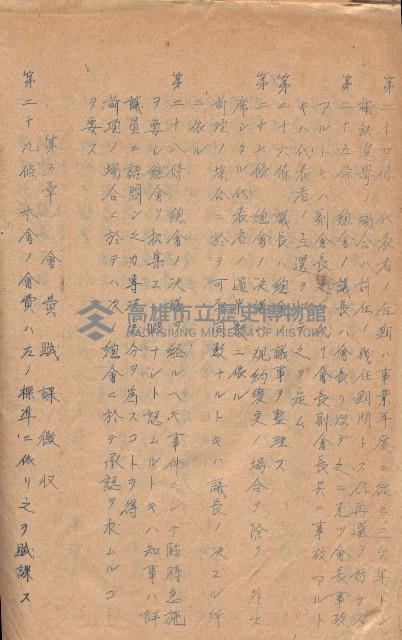 第二十四條 代表者ノ任期ハ事業年度ニ從ヒ三ケ年トシ
補缺選擧ノ場合ハ前任ノ殘任期間トス但再選ヲ妨ケス
第二十五條 總會ノ議長ハ會長ヲ以テ之ニ充ツ會長事故
アルトキハ副會長之ニ代リ會長副會長共ニ事故アルト
キハ代表者ノ互選ヲ以テ之ヲ定ム
第二十六條 議長ハ總會ノ議事ヲ整理ス
第二十七條 總會ノ決議ハ規約變更ノ場合ヲ除ク ノ外出
席シタル代表者ノ過半數ニ依ル
前項ノ場合ニ於テ可否同數ナルトキハ議長ノ決スル所
ニ依ル
第二十八條 總會ノ決議ヲ經ルヘキ事件ニシテ臨時急施
ヲ要シ總會ヲ招集スルノ暇ナシト認ムルトキハ知事ハ評
議員ニ諮問シ之カ專決處分ヲ爲スコトヲ得
前項ノ場合ニ於テハ次ノ總會ニ於テ承認ヲ求ムルコト
ヲ要ス
第五章 會費賦課徵收
第二十九條 本會ノ會費ハ左ノ標準ニ依リ之ヲ賦課ス
高雄市立歷史博物館
KAOHSIUNG MUSEUM OF HISTORY